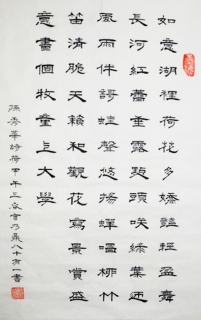 如意湖裡荷花多嬌豔輕盈舞
長河紅蕾露點頭咲綠葉迎
風雨伴詩蛙聲悠揚蟬唱柳竹
笛清脆天籟和觀花寫景賞盛
意畫個牧童上大學
孫秀華詩荷甲午三官乃鼎八十有一書